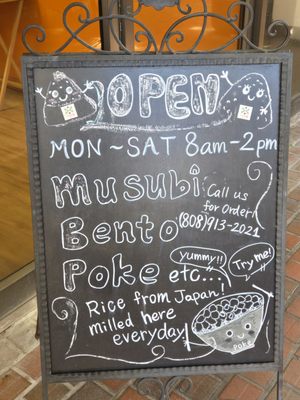 OPEN
MON ~ SAT 8am-2pm
Musubi
Call us
for Order!
Bento
(808)913-2021
Poke etc...
Yummy!!
Try me!
Rice from Japan
milled here
everyday!
POKE